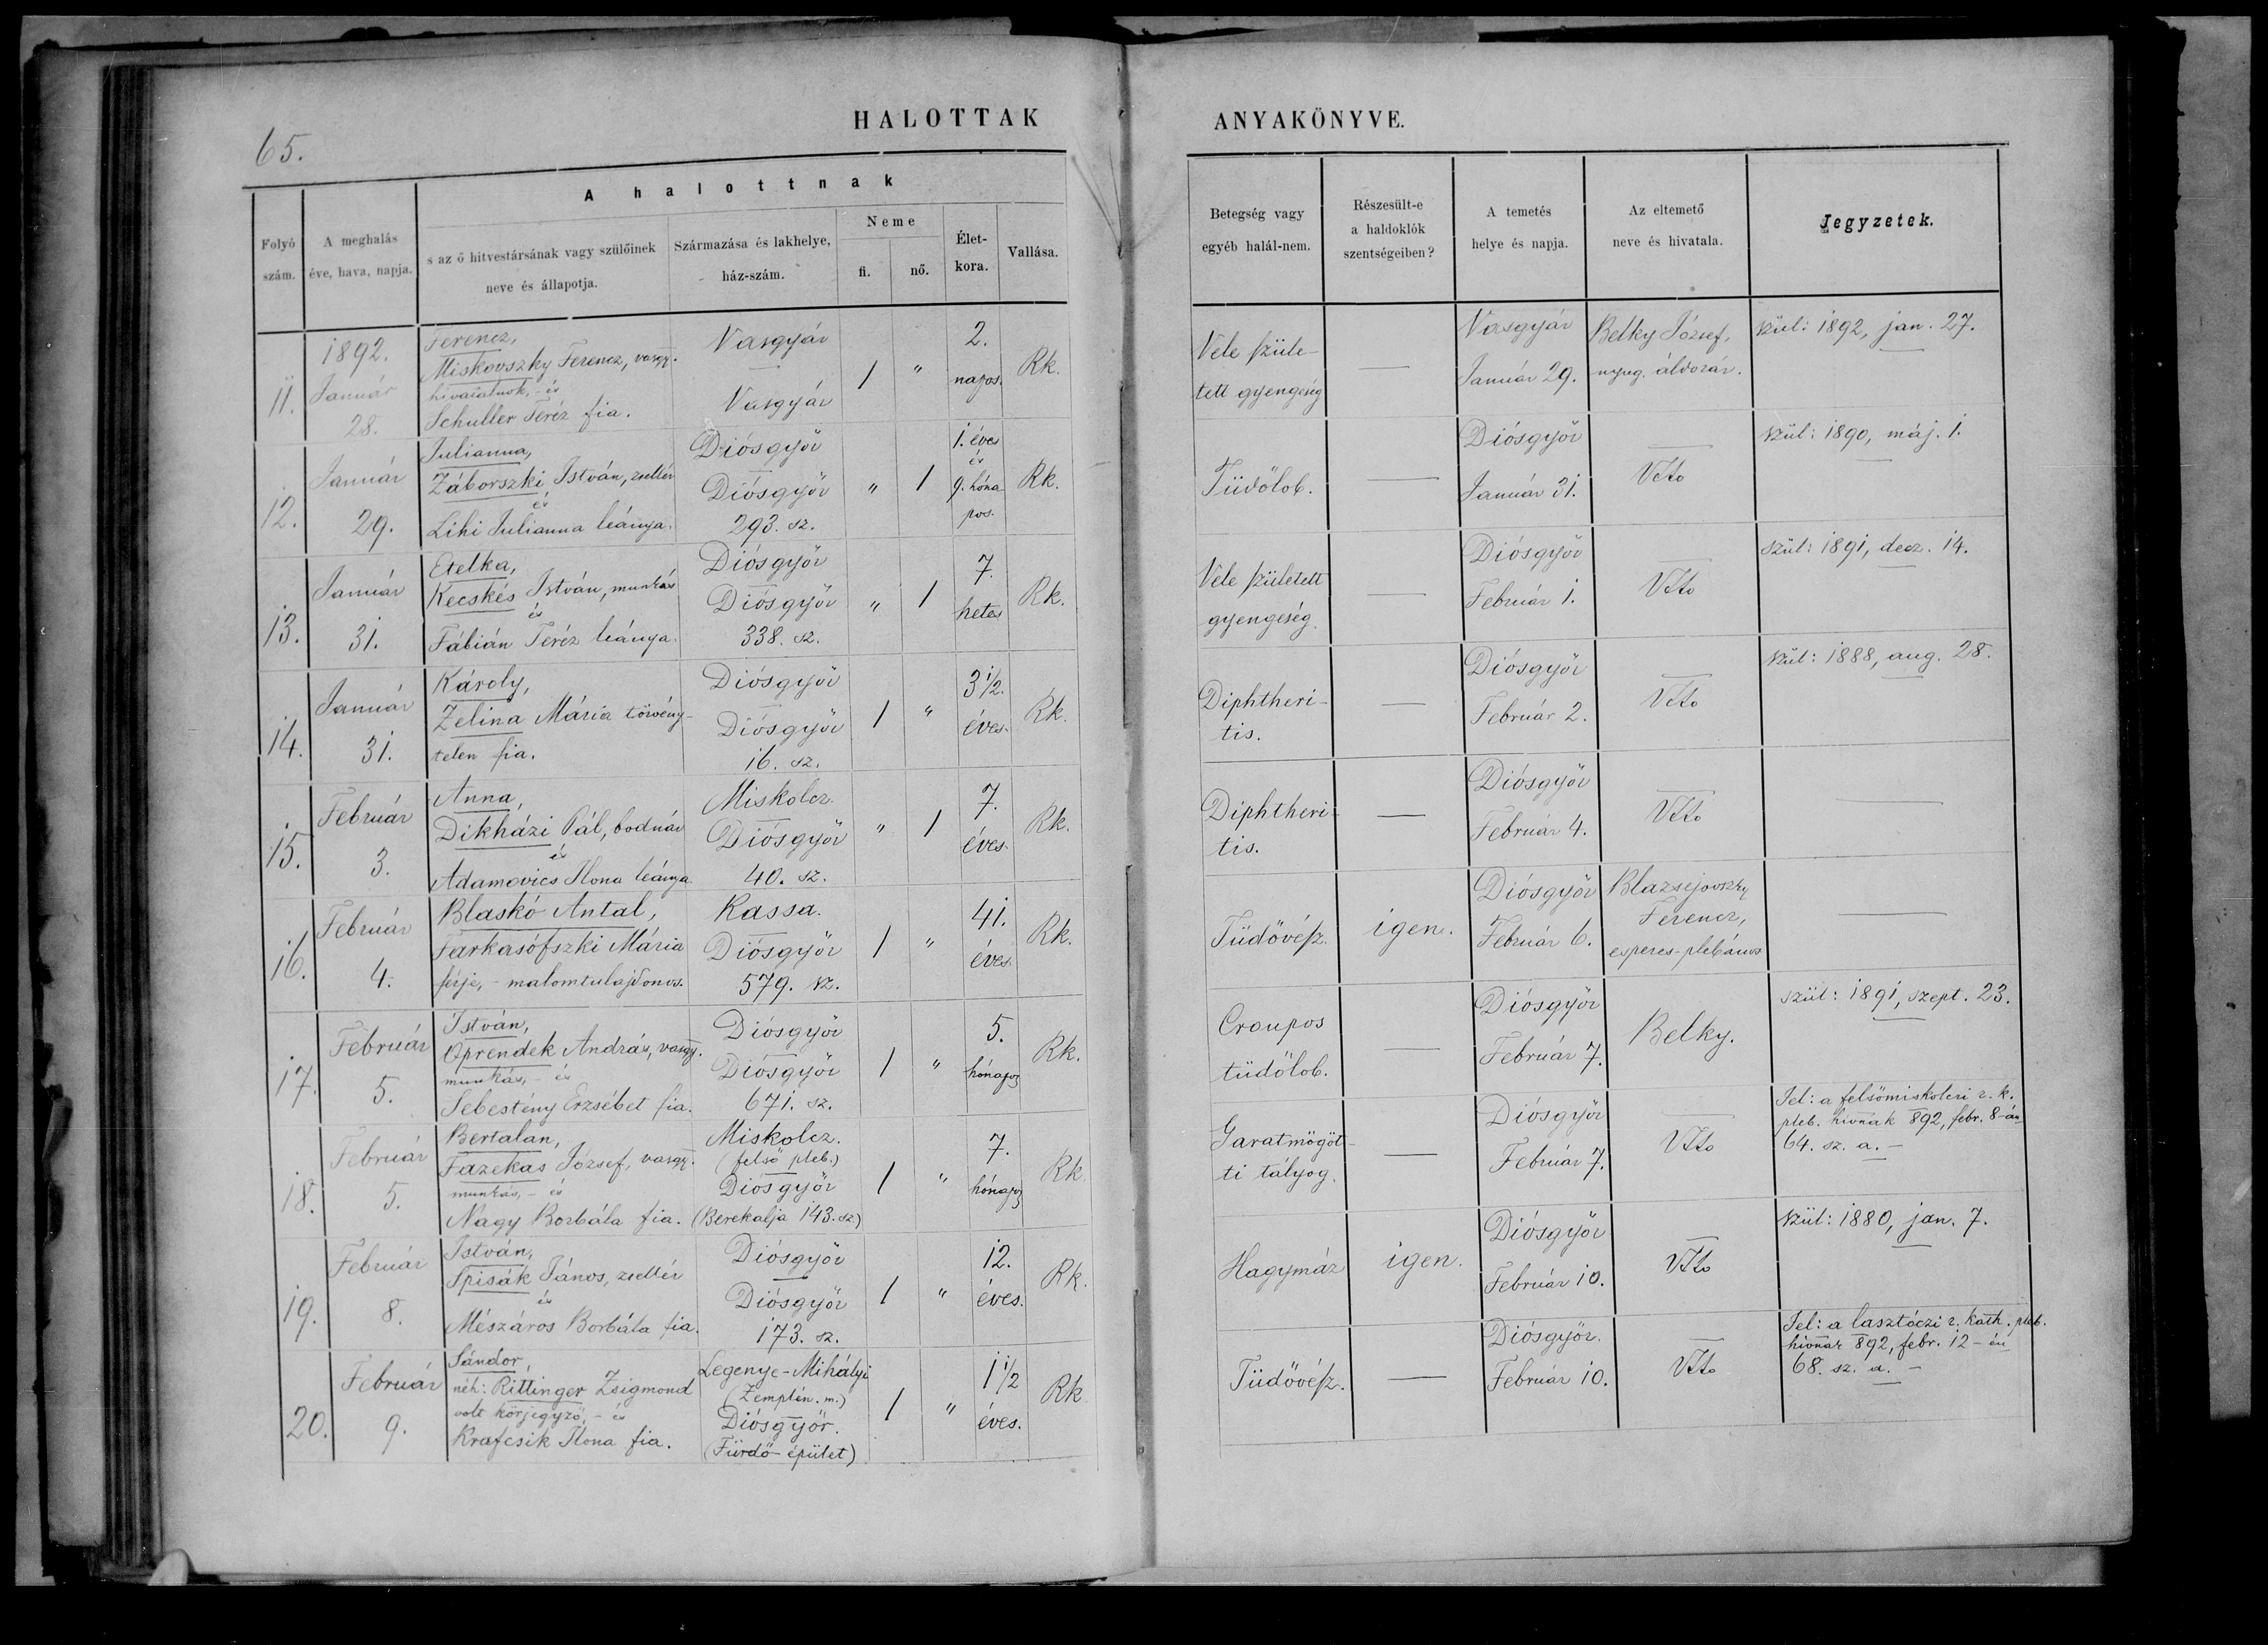 65.
HALOTTAK ANYAKÖNYVE.
Folyó szám.
A meghalás éve, hava, napja.
A halottnak
s az ő hitvestársának vagy szülőinek neve és állapotja.
Származása és lakhelye, ház-szám.
Neme
fi.
nő.
Életkora.
Vallása.
Betegség vagy egyéb halál-nem.
Részesült-e a haldoklók szentségeiben?
A temetés helye és napja.
Az eltemető neve és hivatala.
Jegyzetek.
11.
1892.
Január
28.
Ferencz,
Miskovszky Ferencz, vasgy.
hivatalnok, - és
Schuller Teréz fia.
Vasgyár
Vasgyár
1 "
2.
napos.
Rk.
Vele szüle-
tett gyengeség
—
Vasgyár
Január 29.
Belky József,
nyug. áldozár.
szül: 1892, jan. 27.
12.
Január
29.
Julianna,
Záborszki István, zsellér
és
Lihi Julianna leánya.
Diósgyőr
Diósgyőr
293. sz.
" 1
1. éves
és
9. hóna
pos.
Rk.
Tüdőlob.
—
Diósgyőr
Január 31.
Vtto
szül: 1890, máj. 1.
13.
Január
31.
Etelka,
Kecskés István, munkás
és
Fábián Teréz leánya.
Diósgyőr
Diósgyőr
338. sz.
" 1
7.
hetes
Rk.
Vele született
gyengeség.
—
Diósgyőr
Február 1.
Vtto
szül: 1891, decz. 14.
14.
Január
31.
Károly,
Zelina Mária törvény-
telen fia.
Diósgyőr
Diósgyőr
16. sz.
1 "
3 1/2.
éves.
Rk.
Diphtheri-
tis.
—
Diósgyőr
Február 2.
Vtto
szül: 1888, aug. 28.
15.
Február
3.
Anna,
Dikházi Pál, bodnár
és
Adamovics Ilona leánya.
Miskolcz.
Diósgyőr
40. sz.
" 1
7.
éves.
Rk.
Diphtheri-
tis.
—
Diósgyőr
Február 4.
Vtto
—
16.
Február
4.
Blaskó Antal,
Farkasófszki Mária
férje, - malomtulajdonos.
Kassa.
Diósgyőr
579. sz.
1 "
41.
éves.
Rk.
Tüdővész.
igen.
Diósgyőr
Február 6.
Blazsejovszky
Ferencz,
esperes-plebános
—
17.
Február
5.
István,
Oprendek András, vasgy.
munkás, - és
Sebestény Erzsébet fia.
Diósgyőr
Diósgyőr
671. sz.
1 "
5.
hónapos
Rk.
Croupos
tüdőlob.
—
Diósgyőr
Február 7.
Belky.
szül: 1891, szept. 23.
18.
Február
5.
Bertalan,
Fazekas József, vasgy.
munkás, - és
Nagy Borbála fia.
Miskolcz.
(felső pleb.)
Diósgyőr
(Berekalja 143. sz)
1 "
7.
hónapos
Rk.
Garatmögöt-
ti tályog.
—
Diósgyőr
Február 7.
Vtto
Jel: a felsőmiskolczi r. k.
pleb. hivnak 892, febr. 8-án
64. sz. a. -
19.
Február
8.
István,
Spisák János, zsellér
és
Mészáros Borbála fia.
Diósgyőr
Diósgyőr
173. sz.
1 "
12.
éves.
Rk.
Hagymáz
igen.
Diósgyőr
Február 10.
Vtto
szül: 1880, jan. 7.
20.
Február
9.
Sándor,
néh: Rittinger Zsigmond
volt körjegyző, - és
Krafcsik Ilona fia.
Legenye-Mihályi
(Zemplén. m.)
Diósgyőr.
(Fürdő-épület)
1 "
1 1/2
éves.
Rk
Tüdővész.
—
Diósgyőr.
Február 10.
Vtto
Jel: a lasztóczi r. kath. pleb.
hivnak 892, febr. 12-én
68. sz. a. -